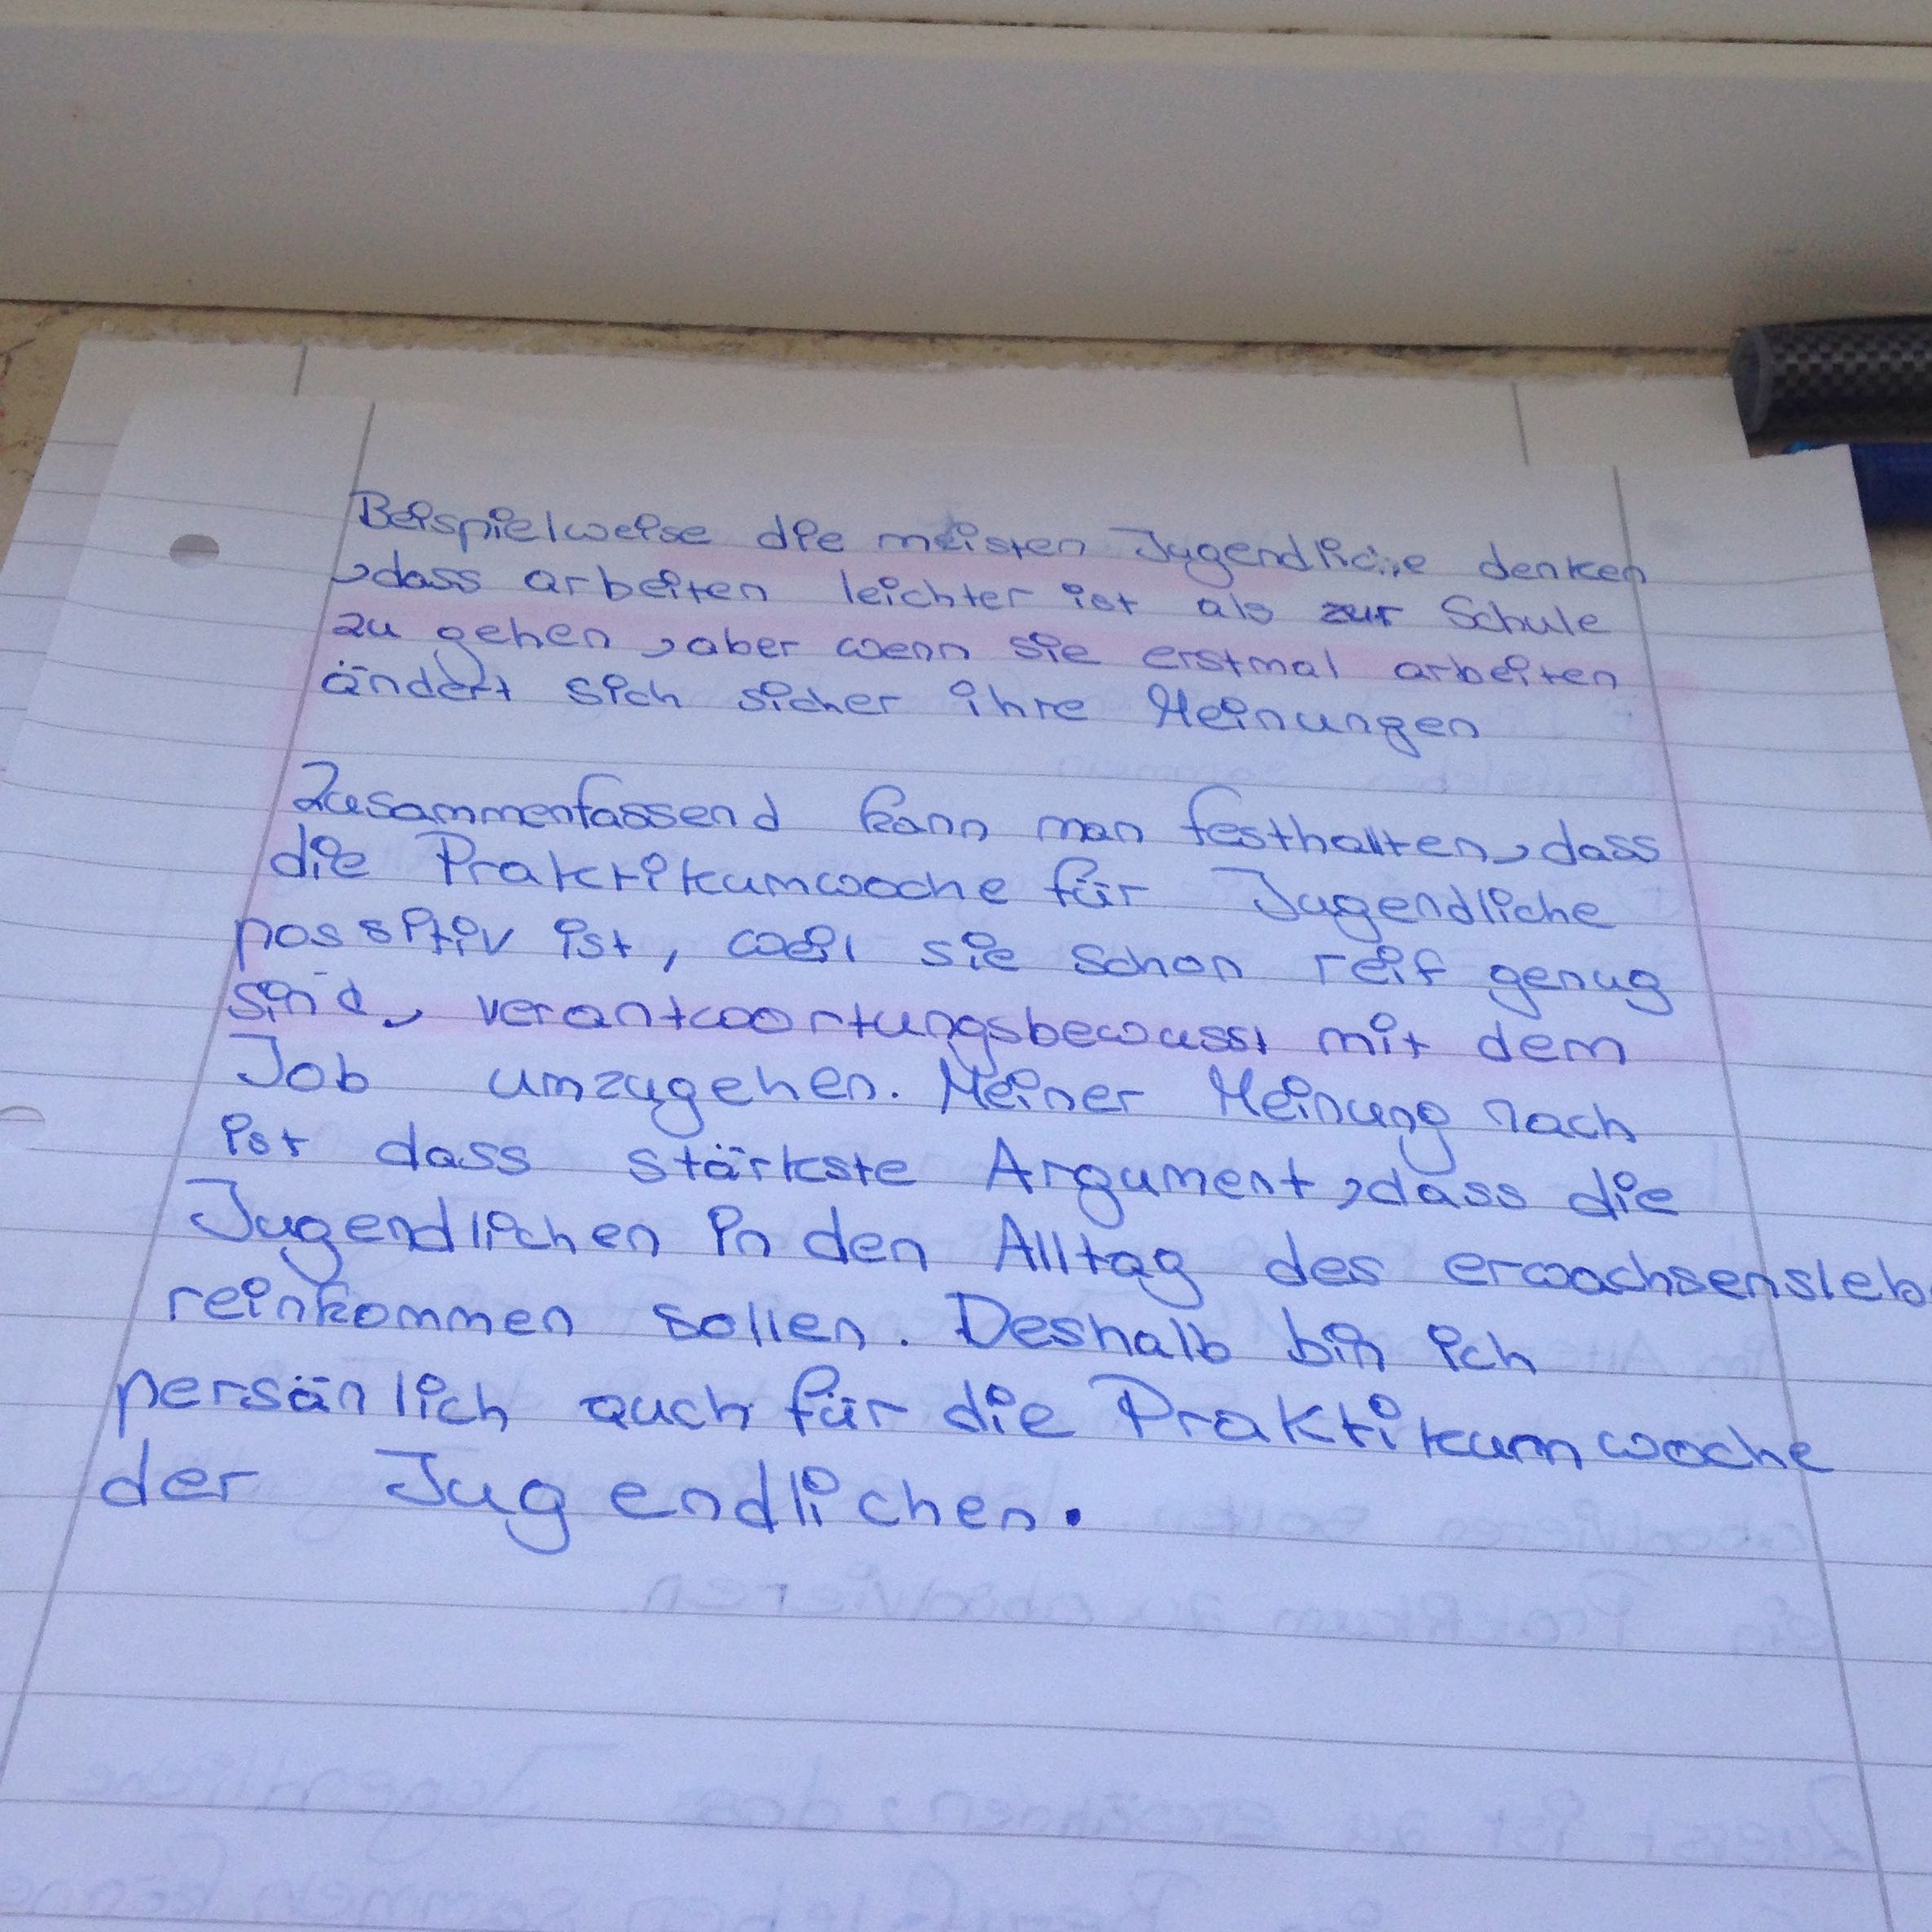 Beispielweise die meisten Jugendliche denken
, dass arbeiten leichter ist als zur Schule
zu gehen, aber wenn sie erstmal arbeiten
ändert sich sicher ihre Meinungen
Zusammenfassend kann man festhalten, dass
die Praktikumwoche für Jugendliche
possitiv ist, weil sie schon reif genug
sind, verantwoortungsbewusst mit dem
Job umzugehen. Meiner Meinung nach
ist dass stärkste Argument, dass die
Jugendlichen in den Alltag des erwachsensleb
reinkommen sollen. Deshalb bin ich
persänlich auch für die Praktikumwoche
der Jugendlichen.